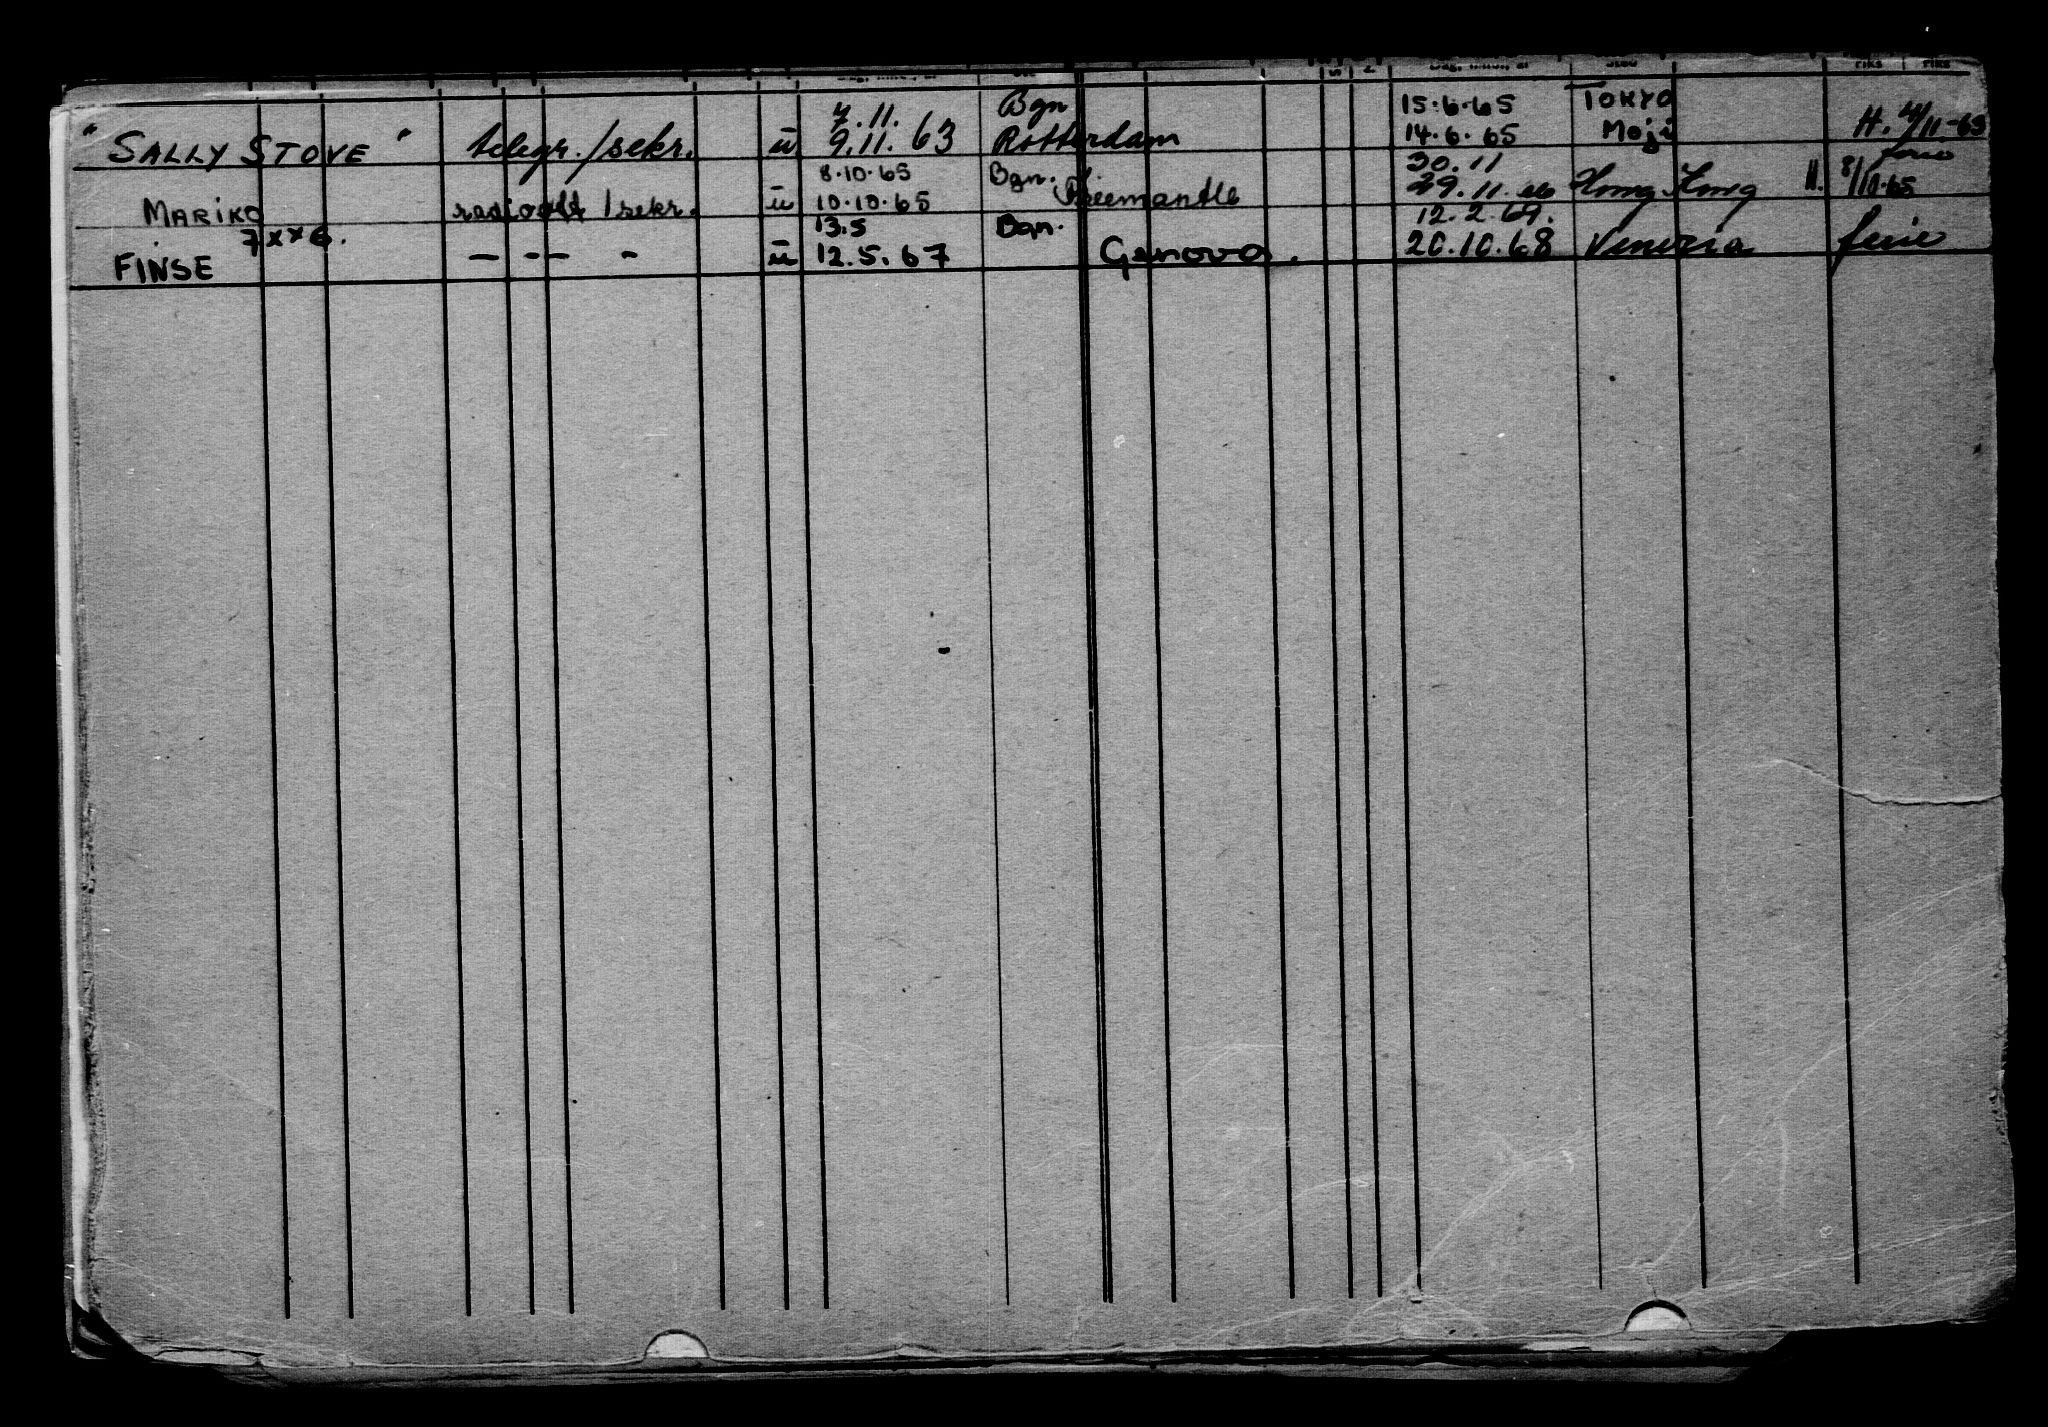 7.11. Bgn 15.6.65 TOKYO
"SALLY STOVE" telegr./sekr. u 9.11.63 Rotterdam 14.6.65 Moji H. 4/11-63
8.10.65 Bgn. 30.11 ferie
MARIKO radiooff/sekr. u 10.10.65 Freemantle 29.11.66 Hong Kong H. 8/10.65
7xx6. 13.5 Bgn. 12.2.69.
FINSE - - - - u 12.5.67 Genova. 20.10.68 Venezia ferie